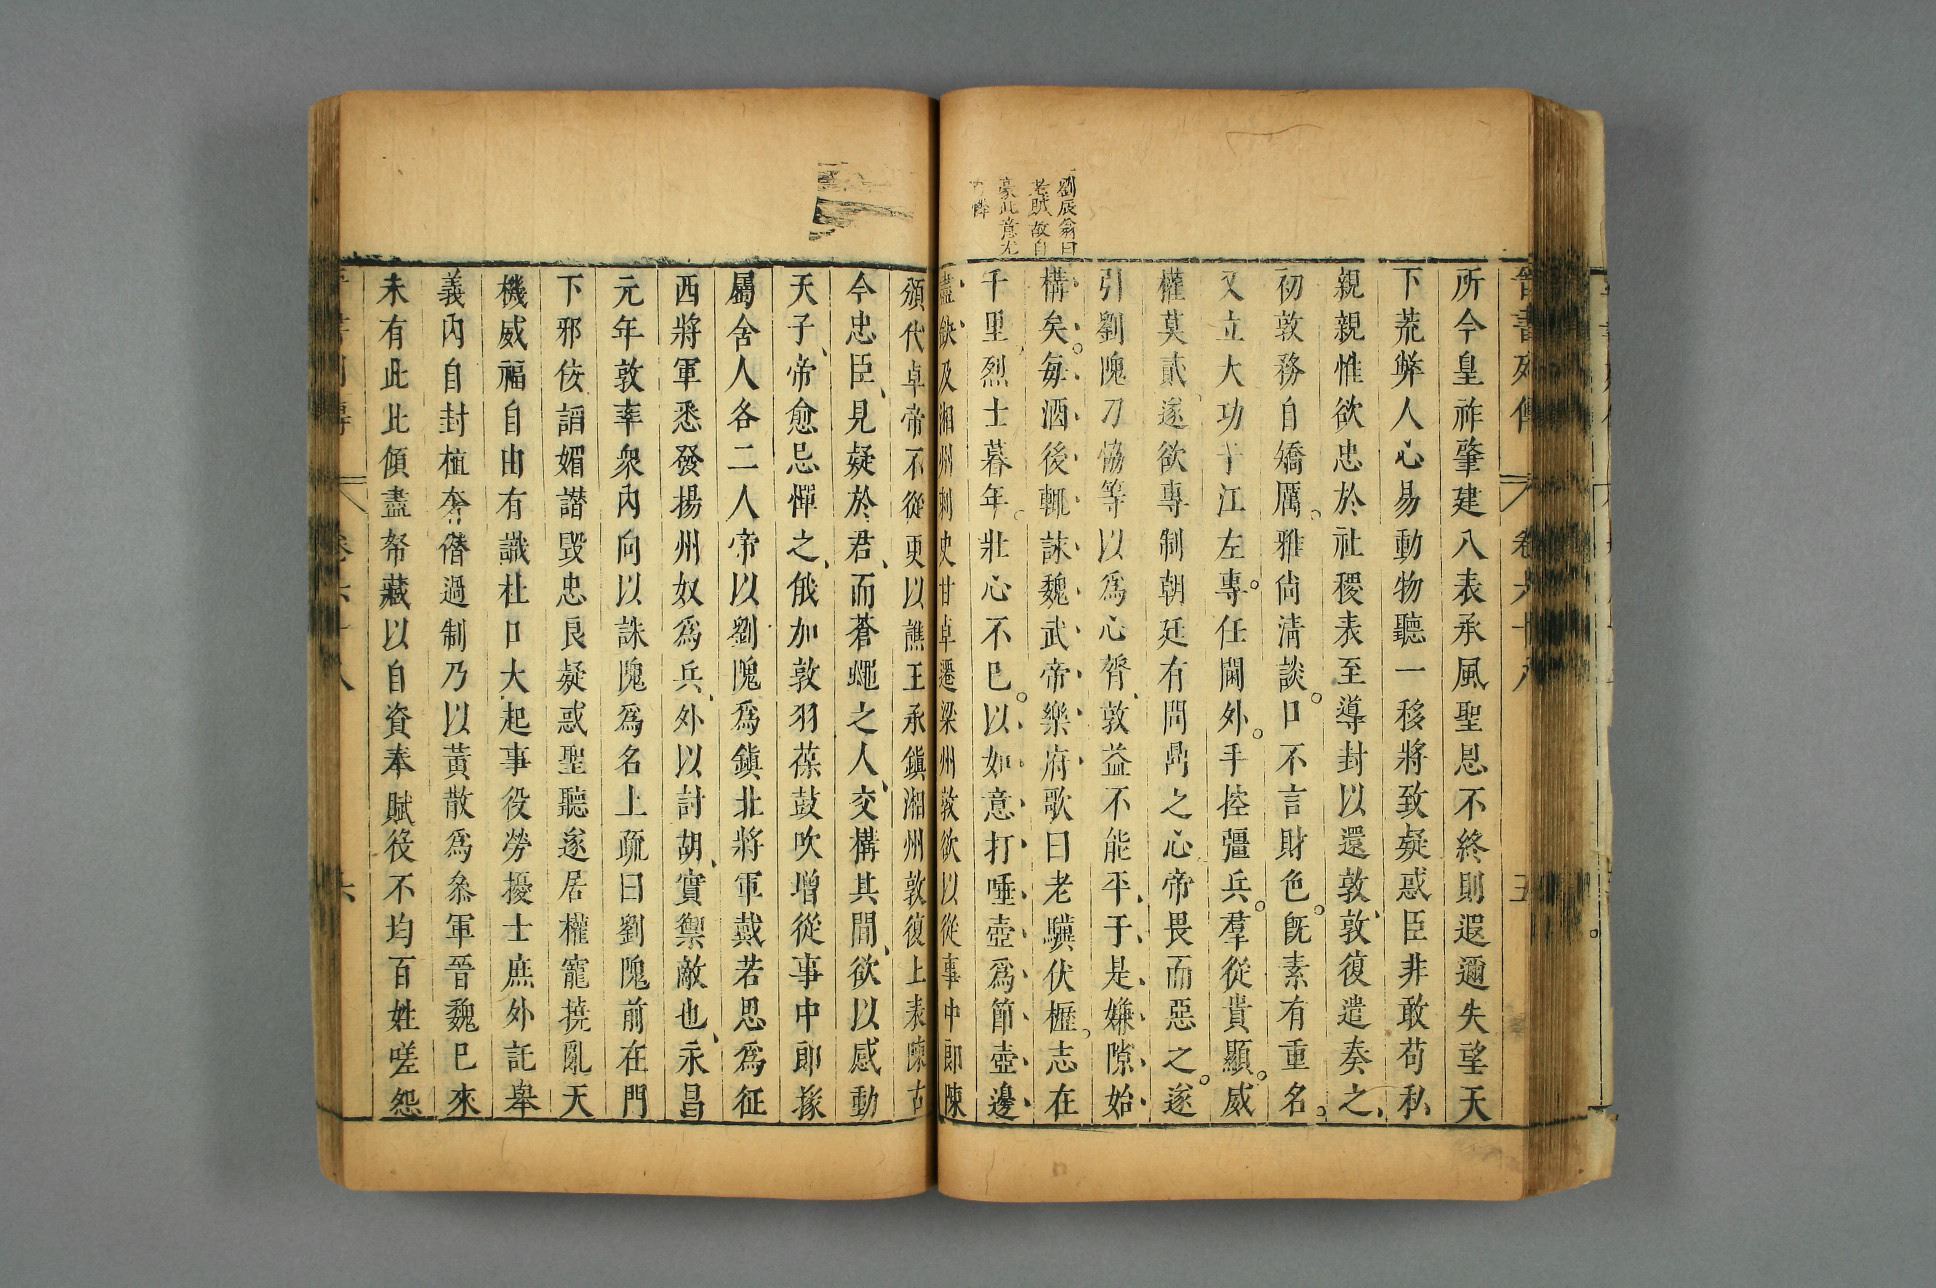 晉書列傳 卷六十八 五
所今皇祚肇建八表承風聖恩不終則遐邇失望天
下荒弊人心易動物聽一移將致疑惑臣非敢苟私
親親惟欲忠於社稷表至導封以還敦敦復遣奏之
初敦務自矯厲雅尚清談口不言財色旣素有重名
又立大功于江左專任閫外手控彊兵羣從貴顯威
權莫貳遂欲專制朝廷有問鼎之心帝畏而惡之遂
引劉隗刀恊等以爲心膂敦益不能平于是嫌隙始
構矣每酒後輒詠魏武帝樂府歌曰老驥伏櫪志在
千里烈士暮年壯心不巳以如意打唾壺爲節壺邊
盡缺及湘州刺史甘卓遷梁州敦欲以從事中郎陳
劉辰翁曰
老賊故自
豪此意尤
頒代卓帝不從更以譙王承鎭湘州敦復上表陳古
今忠臣見疑於君而蒼蠅之人交構其間欲以感動
天子帝愈忌憚之俄加敦羽葆鼓吹增從事中郎掾
屬舍人各二人帝以劉隗爲鎭北將軍戴若思爲征
西將軍悉發揚州奴爲兵外以討胡實禦敵也永昌
元年敦率衆內向以誅隗爲名上疏曰劉隗前在門
下邪佞諂媚譖毁忠良疑惑聖聽遂居權寵撓亂天
機威福自由有識杜口大起事役勞擾士庶外託舉
義內自封植奢僭過制乃以黃散爲叅軍晉魏已來
未有此比傾盡帑藏以自資奉賦役不均百姓嗟怨